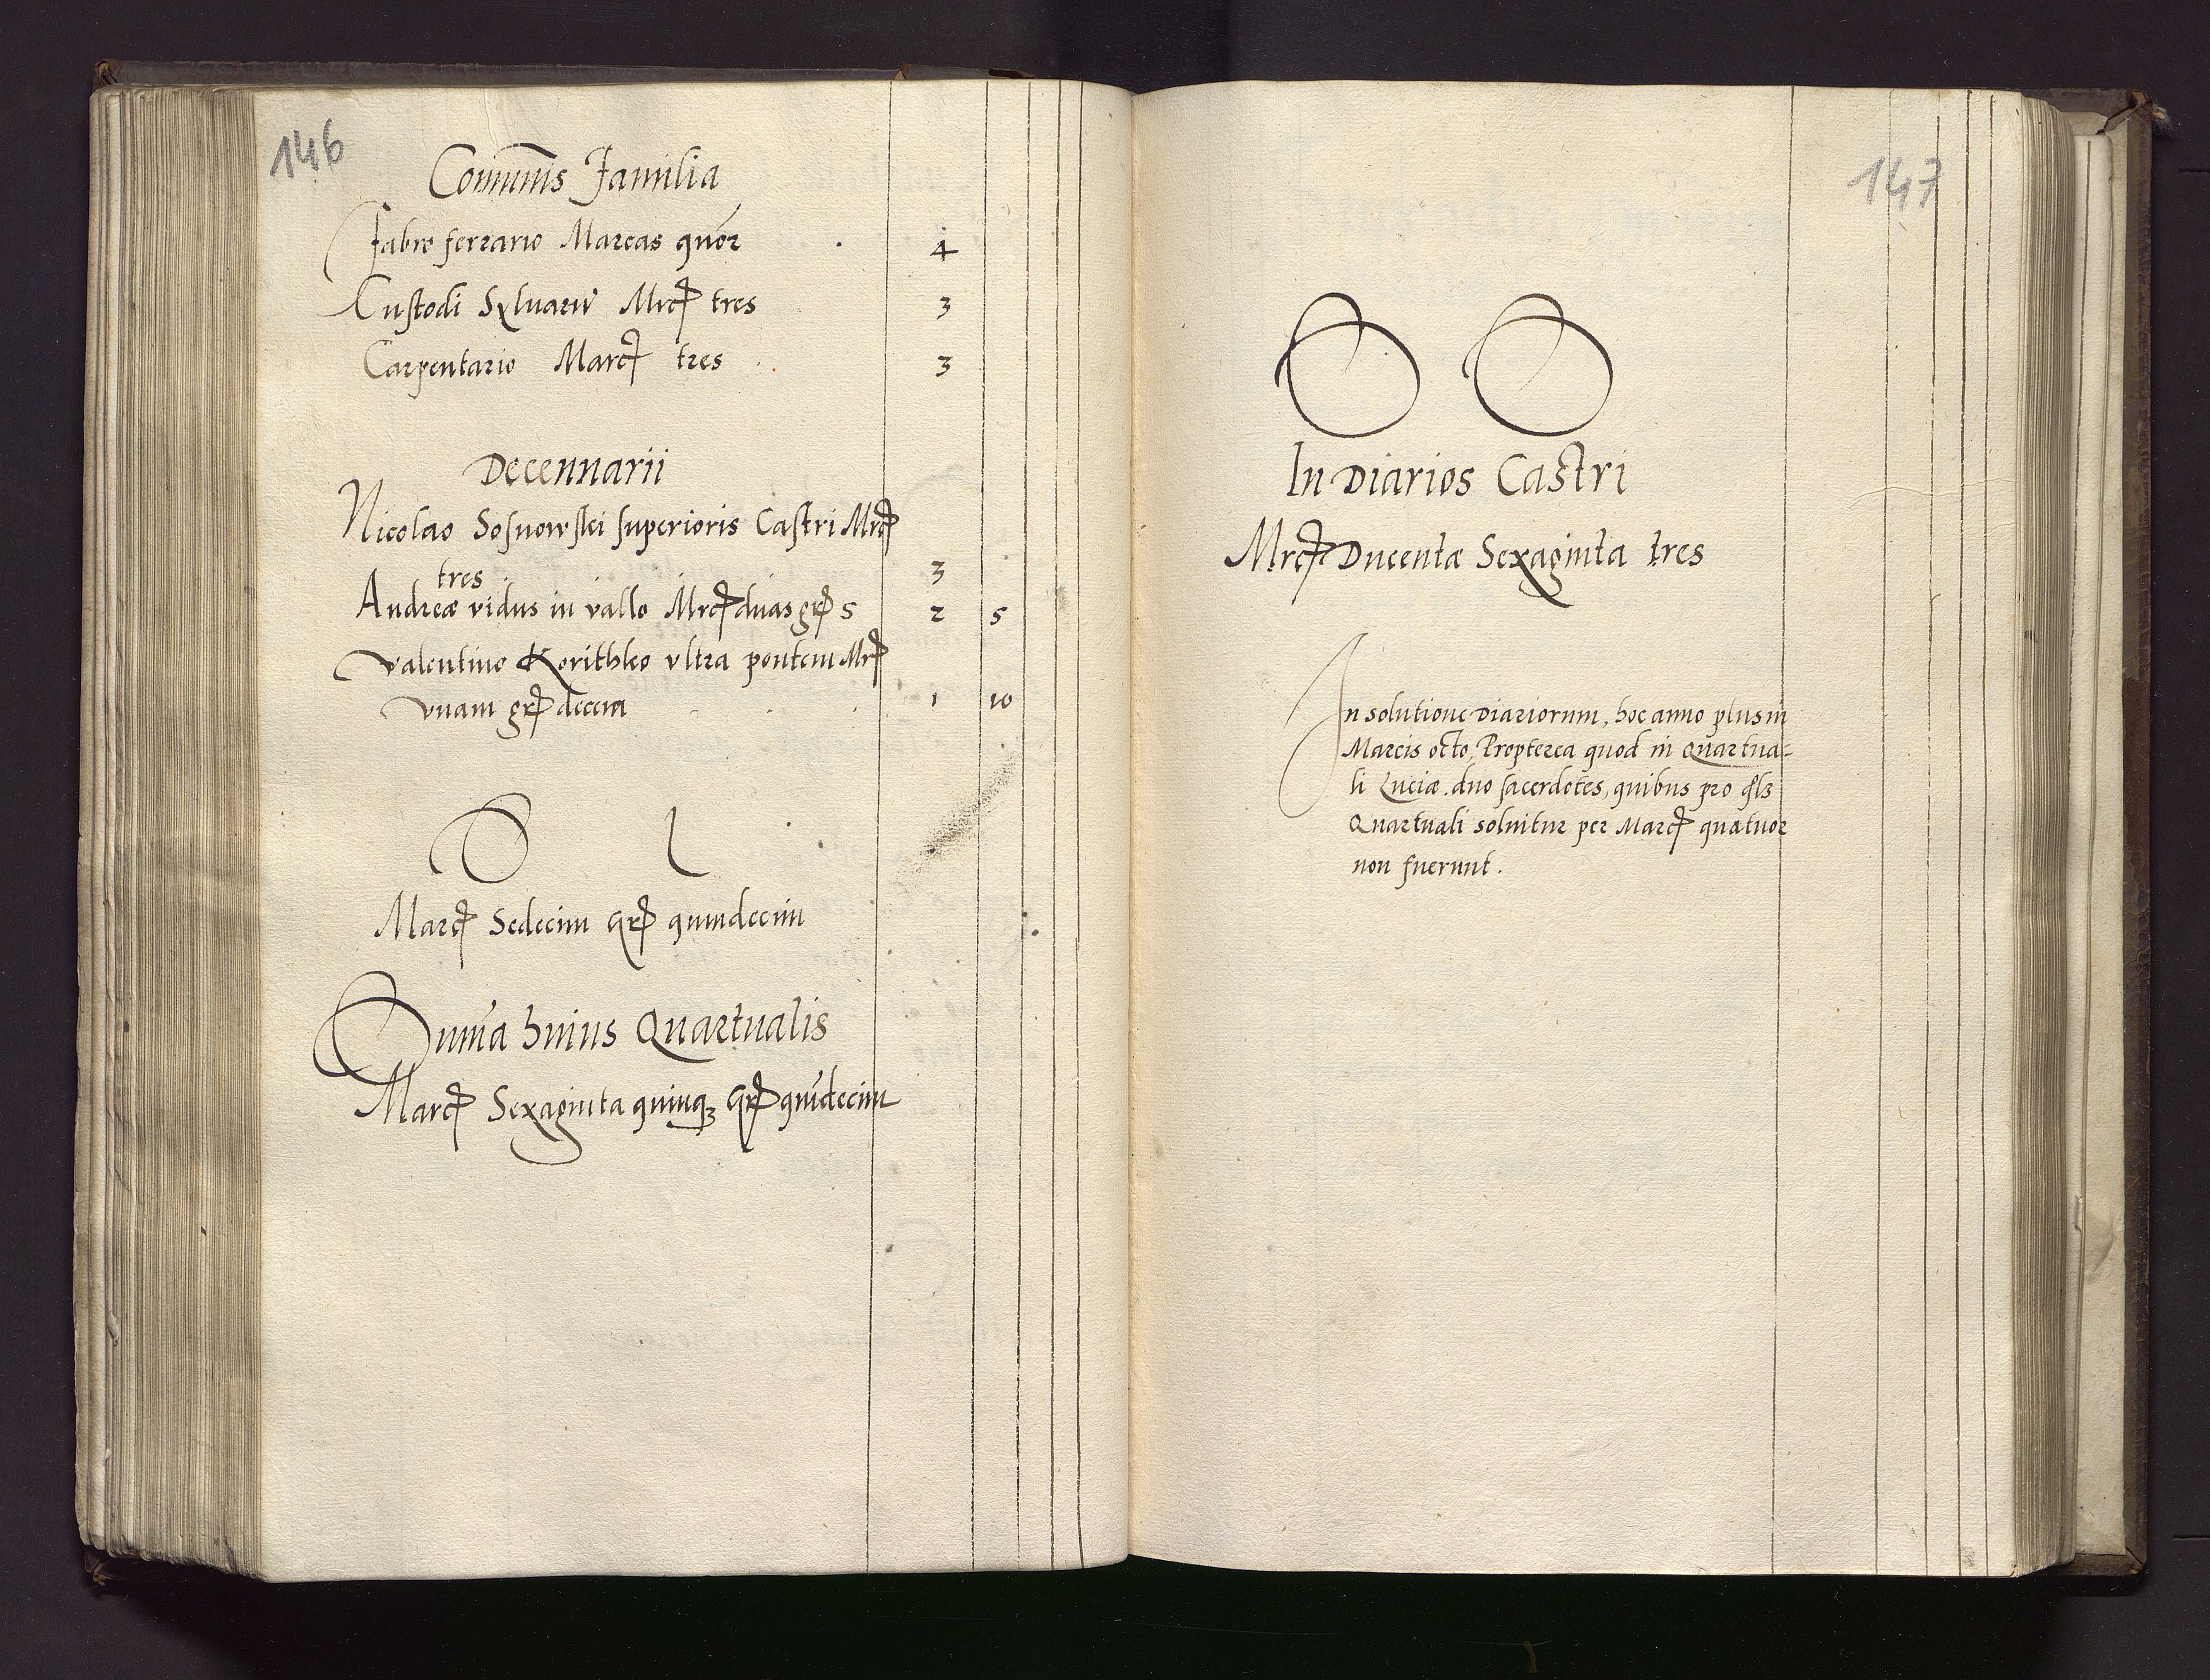 146
Com̅unis Familia
Fabro ferrario Marcas quor 4
Custodi Sylvarū Mrc tres 3
Carpentario Marc tres 3
Decennarii
Nicolao Sosnowskei superioris Castri Mrc
tres 3
Andreæ vidus in vallo Mrc duas gr 5 2 5
Valentino Korithko vltra pontem Mr
vnam gr decem 1 10
S l
Marc Sedecim Gr quindecim
Sum̅a huius Quartualis
Marc Sexaginta quinq₃ Gr quīdecim
147
S S
In Diarios Castri
Mrc Ducentæ Sexaginta tres
In solutione Diariorum, hoc anno plus in
Marcis octo, Propterea quod in Quartua-
li Luciæ. duo sacerdotes, quibus pro qlz
Quartuali solvitur per Marc quatuor
non fuerunt.